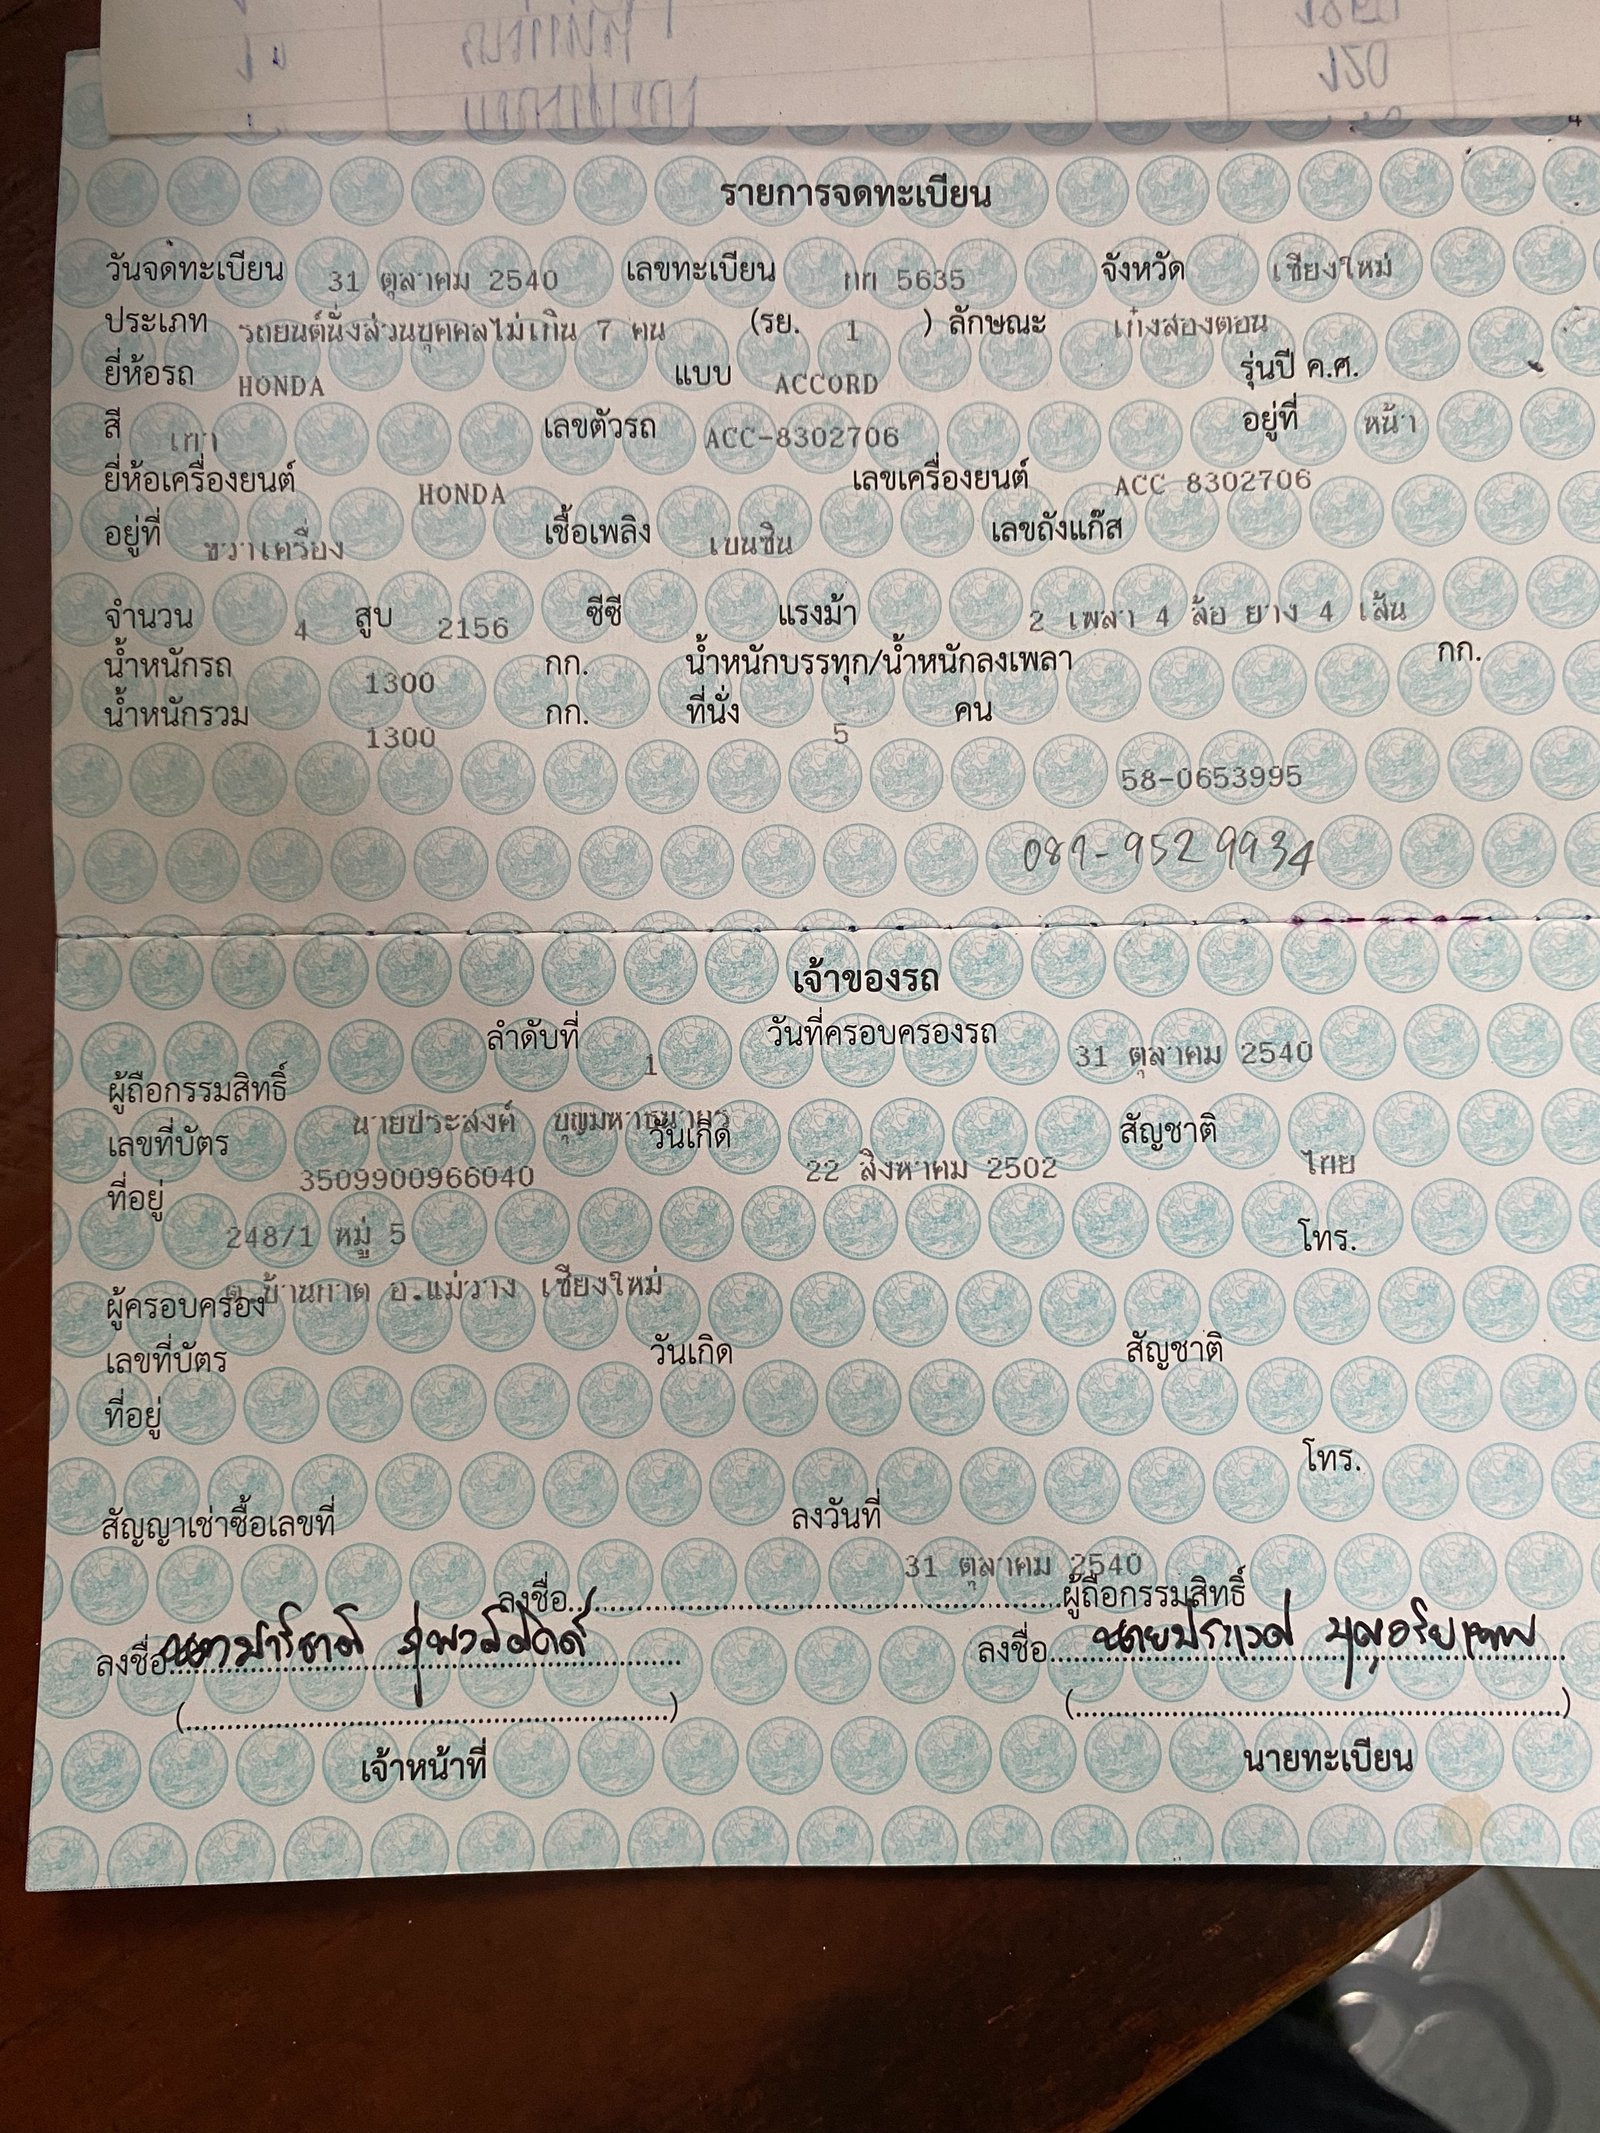 รายการจดทะเบียน
วันจดทะเบียน 31 ตุลาคม 2540 เลขทะเบียน กก 5635 จังหวัด เชียงใหม่
ประเภท รถยนต์นั่งส่วนบุคคลไม่เกิน 7 คน (รย. 1 ) ลักษณะ เก๋งสองตอน
ยี่ห้อรถ HONDA แบบ ACCORD รุ่นปี ค.ศ.
สี เทา เลขตัวรถ ACC-8302706 อยู่ที่ หน้า
ยี่ห้อเครื่องยนต์ HONDA เลขเครื่องยนต์ ACC 8302706
อยู่ที่ ขวาเครื่อง เชื้อเพลิง เบนซิน เลขถังแก๊ส
จำนวน 4 สูบ 2156 ซีซี แรงม้า 2 เพลา 4 ล้อ ยาง 4 เส้น
น้ำหนักรถ 1300 กก. น้ำหนักบรรทุก/น้ำหนักลงเพลา กก.
น้ำหนักรวม 1300 กก. ที่นั่ง 5 คน
58-0653995
081-952 9934
เจ้าของรถ
ลำดับที่ 1 วันที่ครอบครองรถ 31 ตุลาคม 2540
ผู้ถือกรรมสิทธิ์ นายประสงค์
เลขที่บัตร 3509900966040 วันเกิด 22 สิงหาคม 2502 สัญชาติ ไทย
ที่อยู่ 248/1 หมู่ 5 โทร.
ต.บ้านกาด อ.แม่วาง เชียงใหม่
ผู้ครอบครอง
เลขที่บัตร วันเกิด สัญชาติ
ที่อยู่
โทร.
สัญญาเช่าซื้อเลขที่ ลงวันที่
31 ตุลาคม 2540
ลงชื่อ ผู้ถือกรรมสิทธิ์
ลงชื่อ ลงชื่อ นายประเวศ บุญอริยเทพ
เจ้าหน้าที่ นายทะเบียน